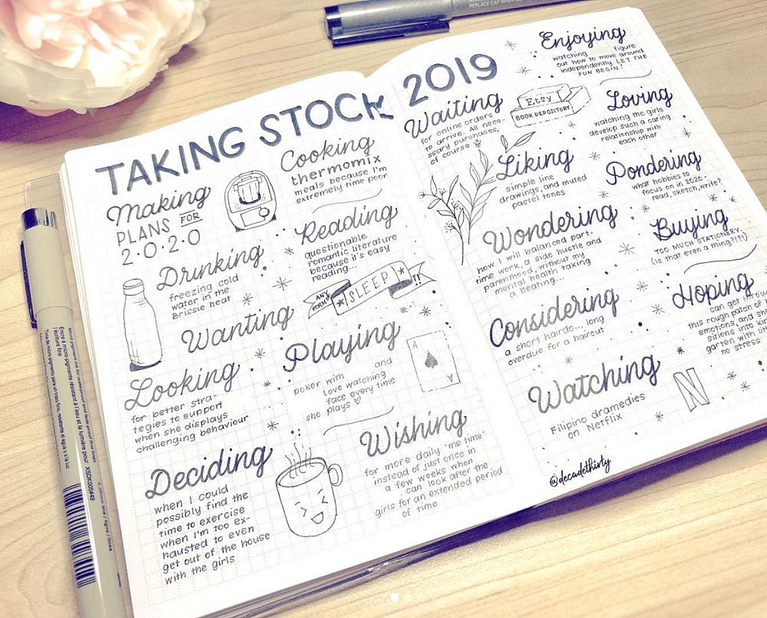 REPLACE CAP WHEN
TAKING STOCK 2019
Making
PLANS FOR
2.0.2.0
Cooking
thermomix
meals because I'm
extremely time poor
Drinking
freezing cold
water in the
Brissie heat
Reading
questionable
romantic literature
because it's easy
reading...
Wanting
ANY MORE
SLEEP
!!
Looking
for better stra-
tegies to support
when she displays
challenging behaviour
Playing
poker with and
Love watching
face every time
she plays
A
Deciding
when I could
possibly find the
time to exercise
when I'm too ex-
hausted to even
get out of the house
with the girls
Wishing
for more daily 'me time'
instead of just once in
a few weeks when
can look after the
girls for an extended period
of time
Waiting
for online orders
to arrive. All nece-
ssary purchases,
of course
Etsy
BOOK DEPOSITORY
Liking
simple line
drawings, and muted
pastel tones
Wondering
how I will balanced part-
time work, a side hustle and
parenthood, without my
mental health taking
a beating...
Considering
a short hairdo... long
overdue for a haircut
Watching
Filipino dramedies
on Netflix
N
Enjoying
watching figure
out how to move around
independently. LET THE
FUN BEGIN!
Loving
watching the girls
develop such a caring
relationship with
each other
Pondering
what hobbies to
focus on in 2020 -
read, sketch, write?
Buying
TOO MUCH STATIONERY
(is that even a thing?!?!)
Hoping
can get
this rough patch of
emotions, and
into
garden with
no stress
@decadethirty